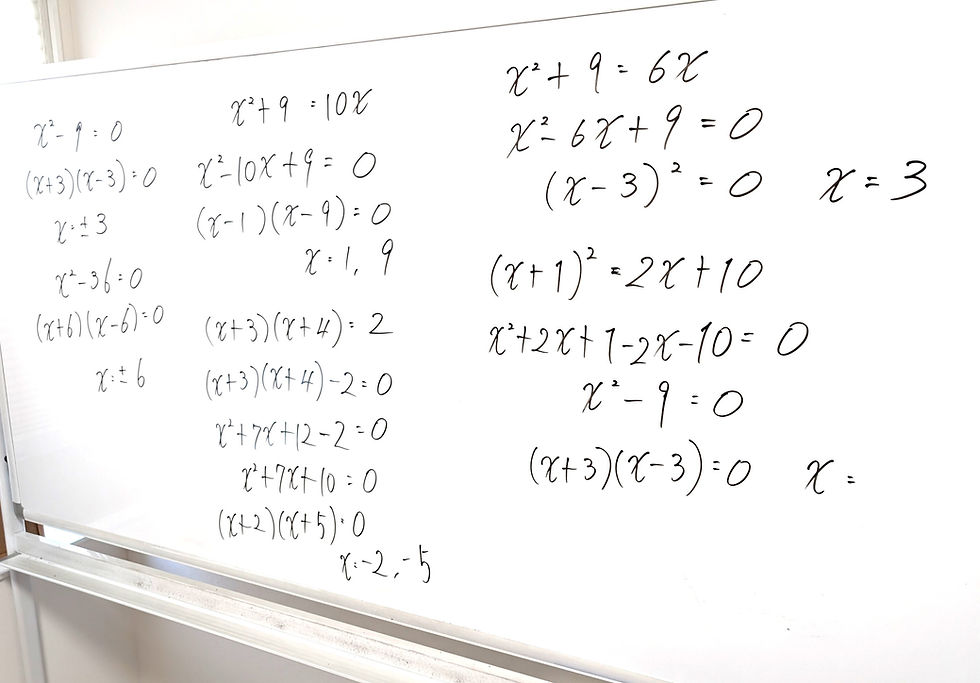 x²-9=0
(x+3)(x-3)=0
x=±3
x²-36=0
(x+6)(x-6)=0
x=±6
x²+9=10x
x²-10x+9=0
(x-1)(x-9)=0
x=1, 9
(x+3)(x+4)=2
(x+3)(x+4)-2=0
x²+7x+12-2=0
x²+7x+10=0
(x+2)(x+5)=0
x=-2,-5
x²+9=6x
x²-6x+9=0
(x-3)²=0 x=3
(x+1)²=2x+10
x²+2x+1-2x-10=0
x²-9=0
(x+3)(x-3)=0 x=